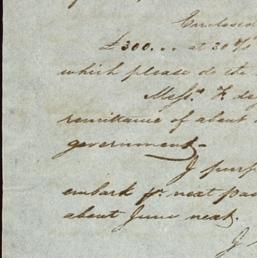 Enclosed
£300... at 30 %
which please do the
Messrs. F. de
remittance of about
government -
I purp
embark pr. next pac
about June next.
I